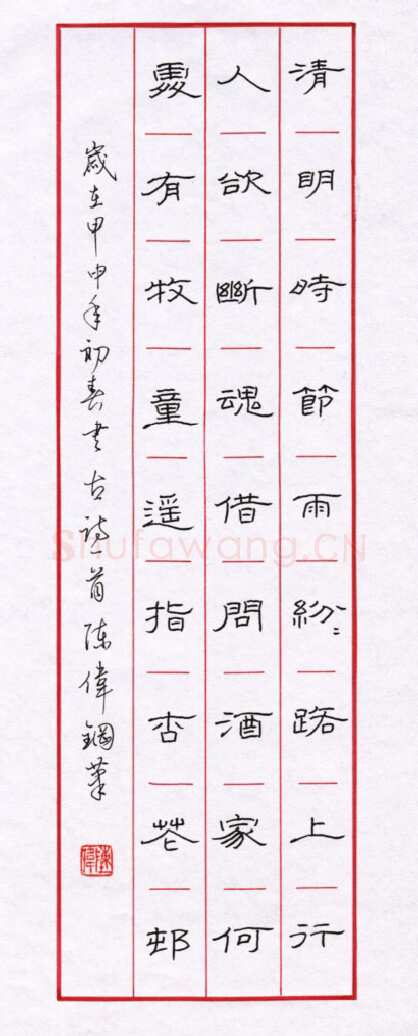 清明時節雨紛〻路上行
人欲斷魂借問酒家何
處有牧童遥指杏花邨
歲在甲申年初春書古詩一首陈偉鋼筆
陳偉
Shufawang.CN